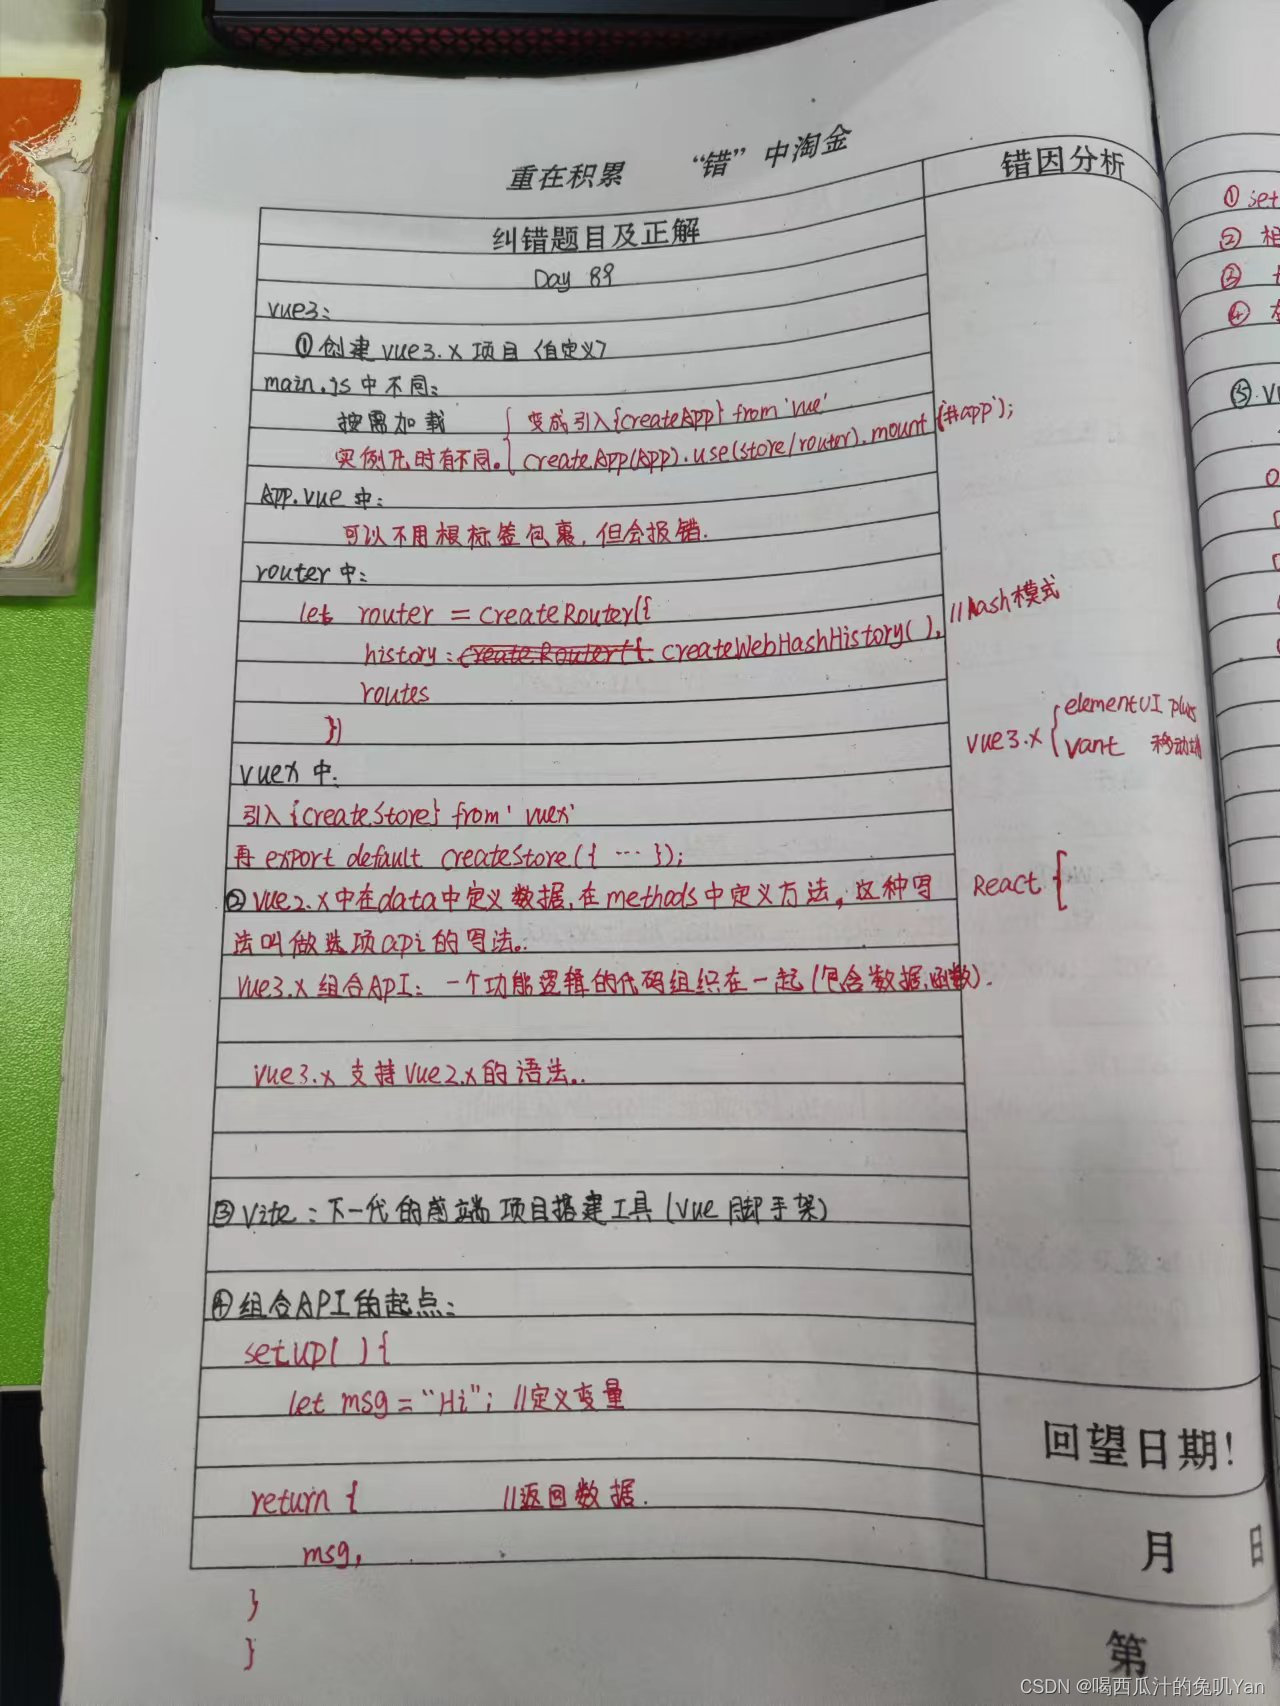 重在积累 “错”中淘金
错因分析
纠错题目及正解
Day 89
vue3:
①创建vue3.x项目〈自定义〉
main.js中不同:
按需加载 { 变成引入{createApp} from 'vue'
实例化时有不同。{ createApp(App).use(store/router).mount('#app');
App.vue中:
可以不用根标签包裹,但会报错.
router中:
let router = createRouter({
history: createWebHashHistory(), //hash模式
routes
})
vue3.x { elementUI plus
vant 移动端
vuex中:
引入{createStore} from 'vuex'
再 export default createStore({ … });
②vue2.x中在data中定义数据,在methods中定义方法,这种写
法叫做选项api的写法。
React {
vue3.x组合API: 一个功能逻辑的代码组织在一起(包含数据,函数).
vue3.x支持vue2.x的语法..
③Vite:下一代的前端项目搭建工具(vue脚手架)
④组合API的起点:
setup( ){
let msg = “Hi”; //定义变量
return { //返回数据.
msg,
}
}
回望日期!
月 日
第
① set
②
③
④
⑤.V
CSDN @喝西瓜汁的兔叽Yan